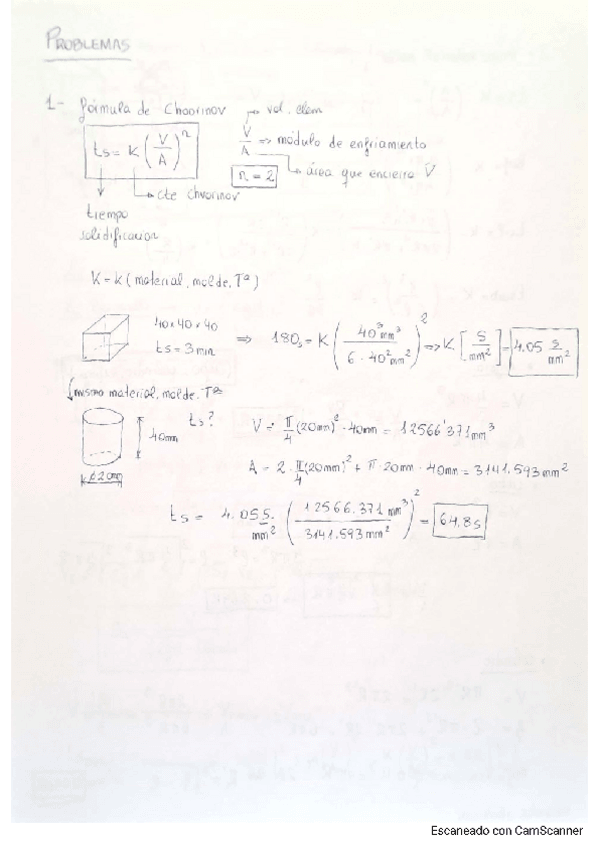 PROBLEMAS
1- fórmula de Chvorinov → vol. elem
ts = K (V/A)^n
V/A => módulo de enfriamiento
n = 2
→ área que encierra V
→ cte Chvorinov
tiempo
solidificación
K = K (material, molde, Tª)
40x40x40
ts = 3 min
=> 180s = K (40³ mm³ / 6 · 40² mm²)² => K [s/mm²] = 4.05 s/mm²
mismo material, molde, Tª
ts?
40mm
φ20mm
V = π/4 (20mm)² · 40mm = 12566'371 mm³
A = 2 · π/4 (20mm)² + π · 20mm · 40mm = 3141.593 mm²
ts = 4.05 s/mm² (12566.371 mm³ / 3141.593 mm²)² = 64.8s
Escaneado con CamScanner